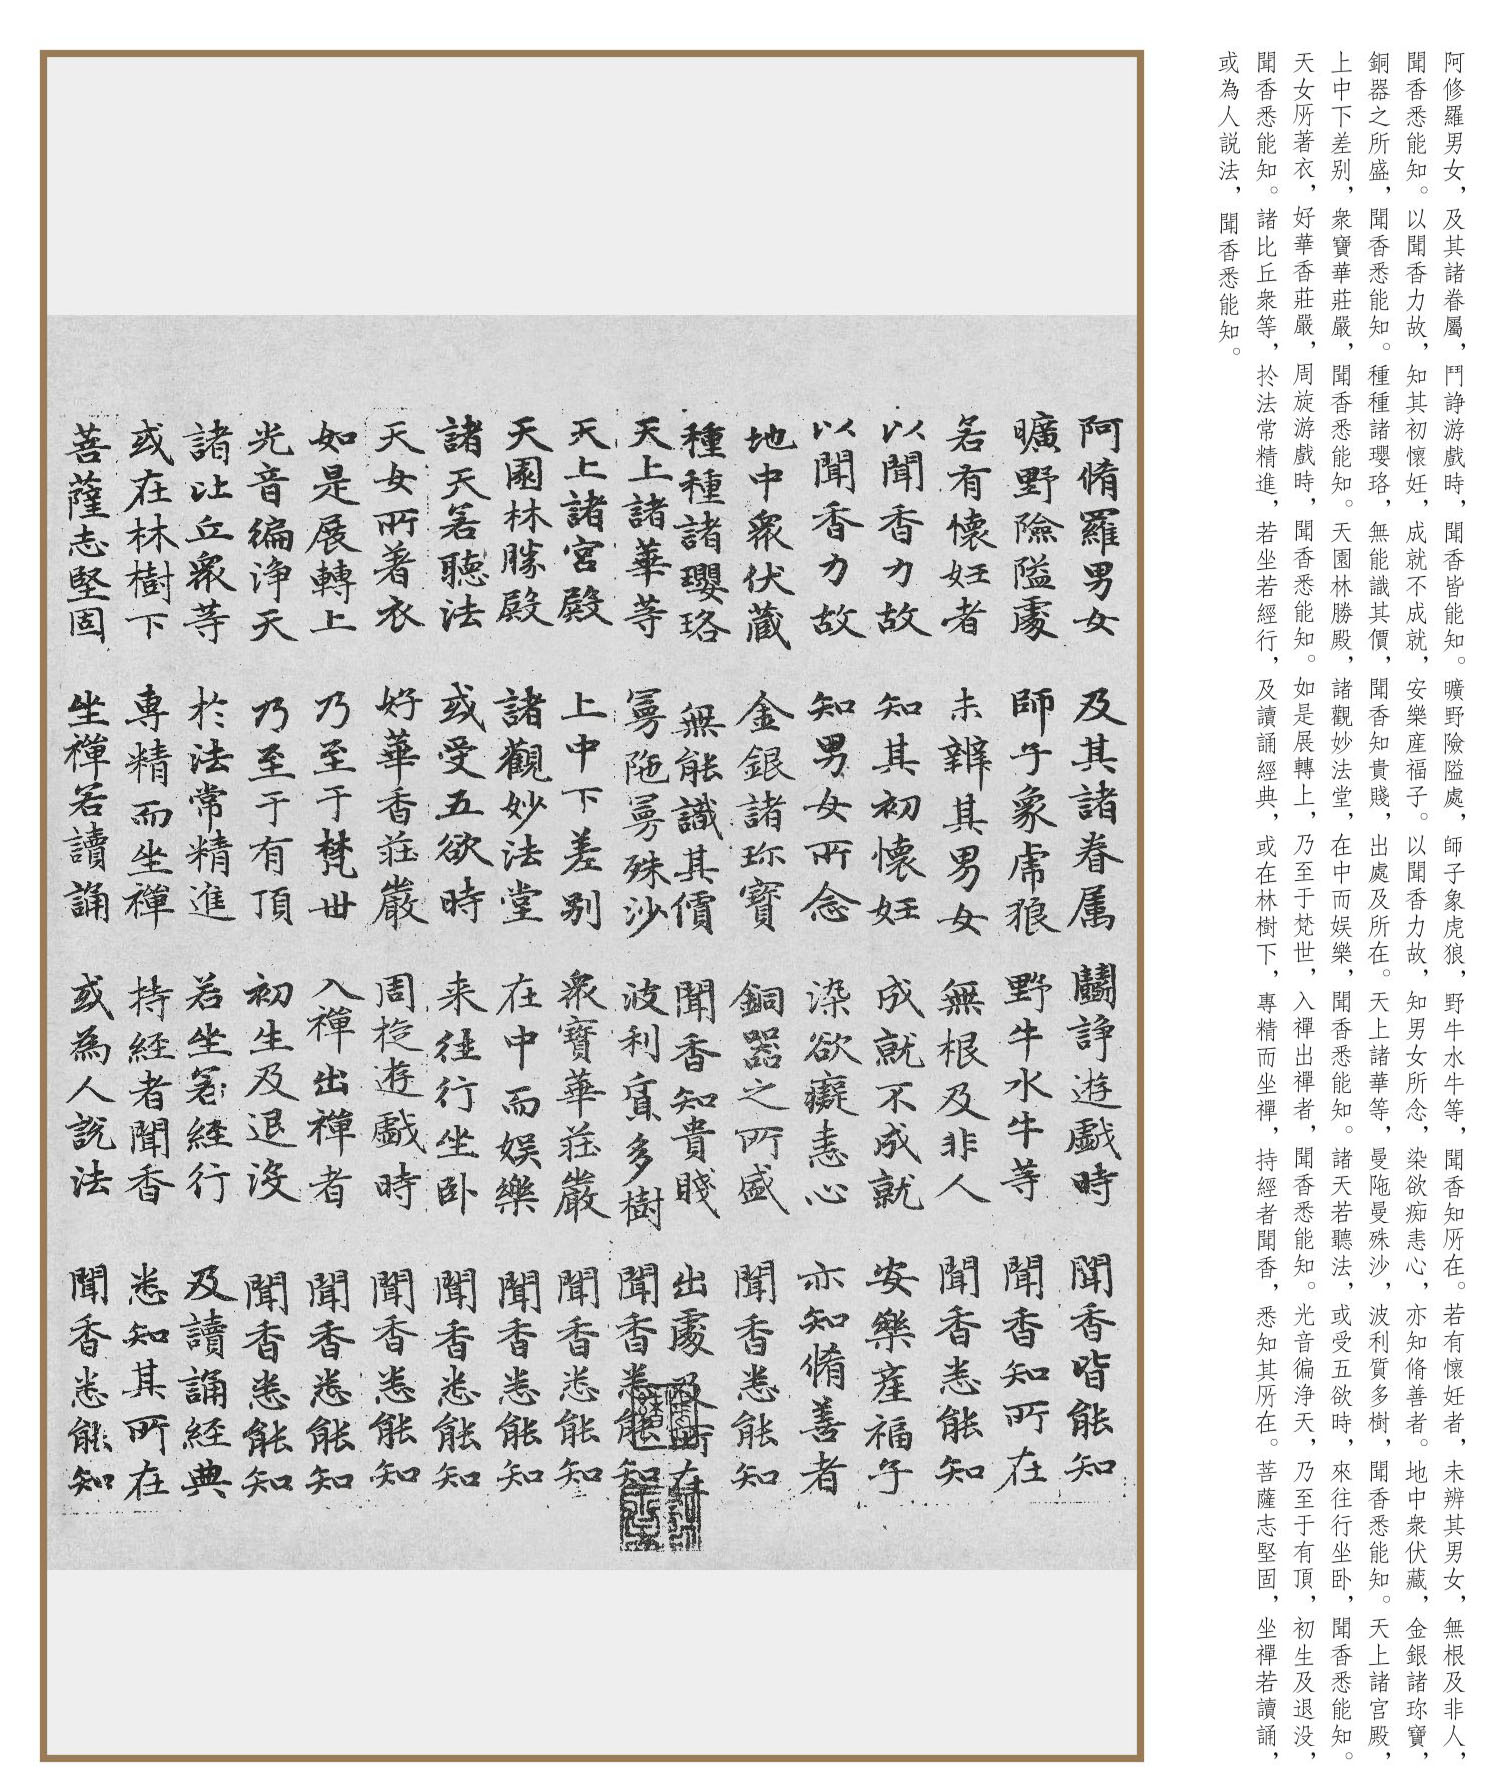 阿修羅男女，及其諸眷屬，鬥諍游戲時，聞香皆能知。曠野險隘處，師子象虎狼，野牛水牛等，聞香知所在。若有懷妊者，未辨其男女，無根及非人，
聞香悉能知。以聞香力故，知其初懷妊，成就不成就，安樂産福子。以聞香力故，知男女所念，染欲痴恚心，亦知脩善者。地中衆伏藏，金銀諸珎寶，
銅器之所盛，聞香悉能知。種種諸瓔珞，無能識其價，聞香知貴賤，出處及所在。天上諸華等，曼陁曼殊沙，波利質多樹，聞香悉能知。天上諸宫殿，
上中下差别，衆寶華莊嚴，聞香悉能知。天園林勝殿，諸觀妙法堂，在中而娱樂，聞香悉能知。諸天若聽法，或受五欲時，來往行坐卧，聞香悉能知。
天女所著衣，好華香莊嚴，周旋游戲時，聞香悉能知。如是展轉上，乃至于梵世，入禪出禪者，聞香悉能知。光音徧净天，乃至于有頂，初生及退没，
聞香悉能知。諸比丘衆等，於法常精進，若坐若經行，及讀誦經典，或在林樹下，專精而坐禪，持經者聞香，悉知其所在。菩薩志堅固，坐禪若讀誦，
或為人説法，聞香悉能知。
阿脩羅男女 及其諸眷属 鬭諍遊戲時 聞香皆能知
曠野險隘處 師子象虎狼 野牛水牛等 聞香知所在
若有懷妊者 未辨其男女 無根及非人 聞香悉能知
以聞香力故 知其初懷妊 成就不成就 安樂産福子
以聞香力故 知男女所念 染欲癡恚心 亦知脩善者
地中衆伏藏 金銀諸珎寶 銅器之所盛 聞香悉能知
種種諸瓔珞 無能識其價 聞香知貴賤 出處及所在
天上諸華等 曼陁曼殊沙 波利質多樹 聞香悉能知
天上諸宮殿 上中下差别 衆寶華莊嚴 聞香悉能知
天園林勝殿 諸觀妙法堂 在中而娛樂 聞香悉能知
諸天若聽法 或受五欲時 来往行坐卧 聞香悉能知
天女所著衣 好華香莊嚴 周旋遊戲時 聞香悉能知
如是展轉上 乃至于梵世 入禪出禪者 聞香悉能知
光音徧淨天 乃至于有頂 初生及退没 聞香悉能知
諸比丘衆等 於法常精進 若坐若經行 及讀誦經典
或在林樹下 專精而坐禪 持經者聞香 悉知其所在
菩薩志堅固 坐禪若讀誦 或為人説法 聞香悉能知